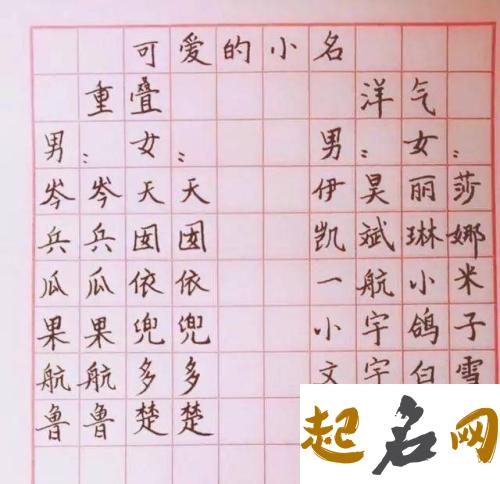 可爱的小名
重叠 洋气
男： 女： 男： 女：
岑岑 天天 伊昊 丽莎
兵兵 囡囡 凯斌 琳娜
瓜瓜 依依 一航 小米
果果 兜兜 小宇 鸽子
航航 多多 文宇 白雪
鲁鲁 楚楚
起名网